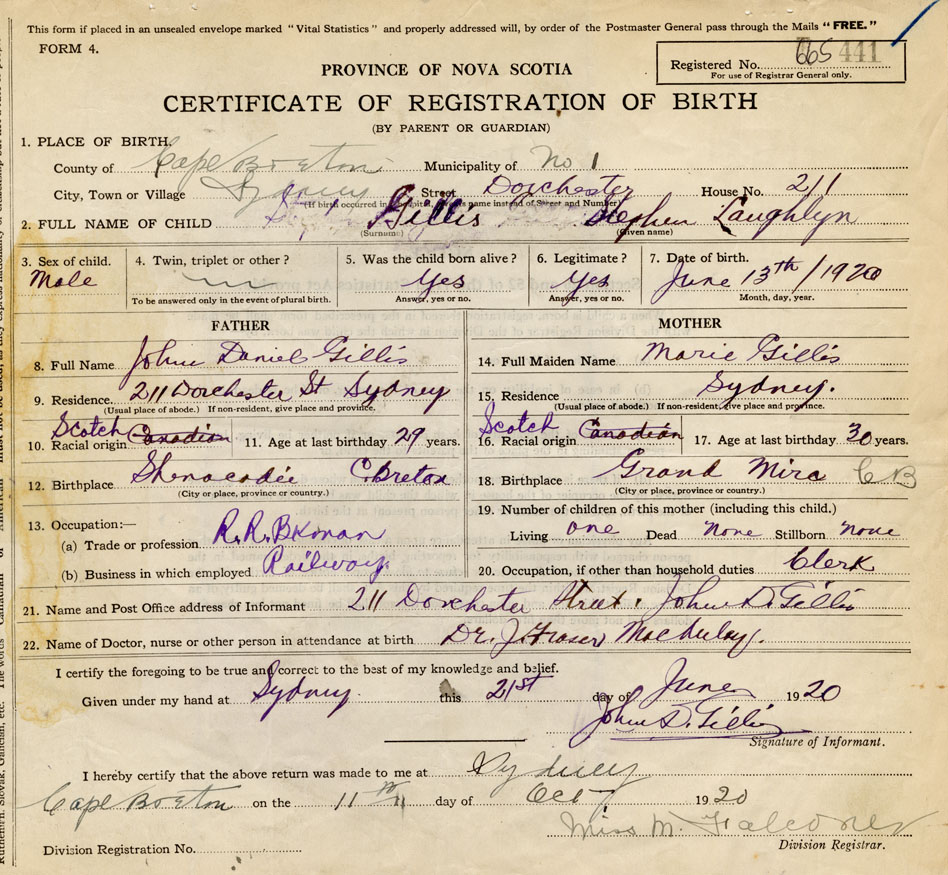 This form if placed in an unsealed envelope marked "Vital Statistics" and properly addressed will, by order of the Postmaster General pass through the Mails "FREE."
FORM 4.
Registered No. 665 441
For use of Registrar General only.
PROVINCE OF NOVA SCOTIA
CERTIFICATE OF REGISTRATION OF BIRTH
(BY PARENT OR GUARDIAN)
1. PLACE OF BIRTH.
County of Cape Breton Municipality of No 1
City, Town or Village Sydney Street Dorchester House No. 211
(If birth occurred in hospital, name instead of Street and Number)
2. FULL NAME OF CHILD Gillis Stephen Laughlyn
(Surname) (Given name)
3. Sex of child. Male
4. Twin, triplet or other?
To be answered only in the event of plural birth.
5. Was the child born alive? Yes
Answer, yes or no.
6. Legitimate? Yes
Answer, yes or no.
7. Date of birth. June 13th / 1920
Month, day, year.
FATHER
8. Full Name John Daniel Gillis
9. Residence. 211 Dorchester St Sydney
(Usual place of abode.) If non-resident, give place and province.
10. Racial origin Scotch Canadian 11. Age at last birthday 29 years.
12. Birthplace Shenacadie C. Breton
(City or place, province or country.)
13. Occupation:—
(a) Trade or profession R. R. Bkman
(b) Business in which employed Railway
MOTHER
14. Full Maiden Name Marie Gillis
15. Residence Sydney.
(Usual place of abode.) If non-resident, give place and province.
16. Racial origin Scotch Canadian 17. Age at last birthday 30 years.
18. Birthplace Grand Mira CB
(City or place, province or country.)
19. Number of children of this mother (including this child.)
Living one Dead None Stillborn None
20. Occupation, if other than household duties Clerk
21. Name and Post Office address of Informant 211 Dorchester Street, John D. Gillis
22. Name of Doctor, nurse or other person in attendance at birth Dr. J. Fraser
I certify the foregoing to be true and correct to the best of my knowledge and belief.
Given under my hand at Sydney this 21st day of June 1920
John D. Gillis
Signature of Informant.
I hereby certify that the above return was made to me at Sydney
Cape Breton on the 11th day of Oct 1920
Miss M. Falconer
Division Registration No.
Division Registrar.